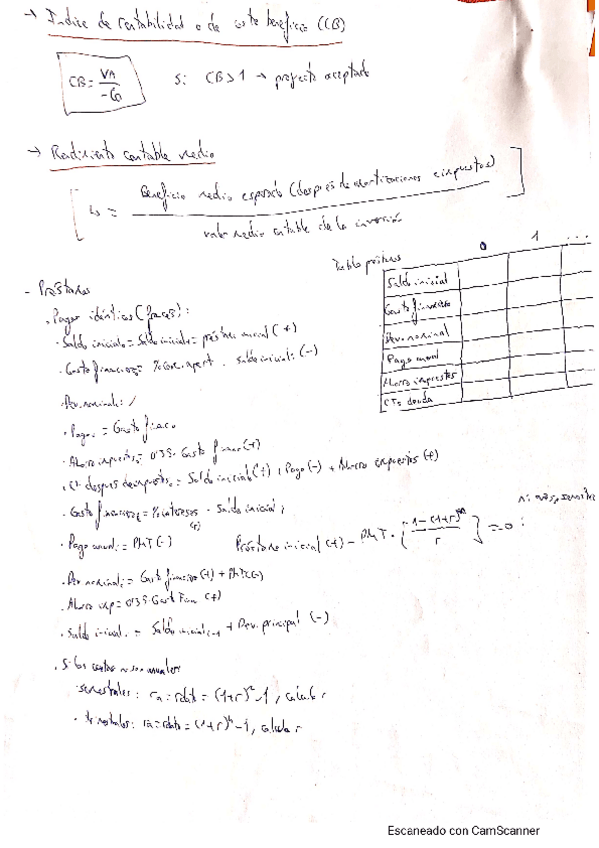 → Índice de rentabilidad o de coste beneficio (CB)
CB = VA / -C0
Si CB > 1 → proyecto aceptado
→ Rendimiento contable medio
[ = Beneficio medio esperado (después de amortizaciones e impuestos) / valor medio contable de la inversión ]
- Préstamos
Tabla préstamo
0 1 ...
Saldo inicial
Gasto financiero
Dev. nominal
Pago anual
Ahorro impuestos
CTs deuda
. Pagos idénticos (francés):
. Saldo inicial0 = Saldo inicial1 = préstamo inicial (+)
. Gasto financiero0 = % com. apert . saldo inicial1 (-)
. Dev. nominal: /
. Pago0 = Gasto financ0
. Ahorro impuestos0 = 0'35 . Gasto financ0 (+)
. Cf después de impuestos0 = Saldo inicial0 (+) + Pago (-) + Ahorro impuestos (+)
. Gasto financiero1 = % intereses (+) . Saldo inicial1
. Pago anual1 = PMT (-)
Préstamo inicial (+) - PMT . [ 1 - (1+r)^-n / r ] = 0
. Dev nominal1 = Gasto financiero (+) + PMT (-)
. Ahorro imp = 0'35 . Gasto Fina (+)
. Saldo inicial = Saldo inicial + Dev. principal (-)
. Si los costes no son anuales
. semestrales: ra = rdato = (1+r)^2 - 1, calcular r
. trimestrales: ra = rdato = (1+r)^4 - 1, calcular r
Escaneado con CamScanner